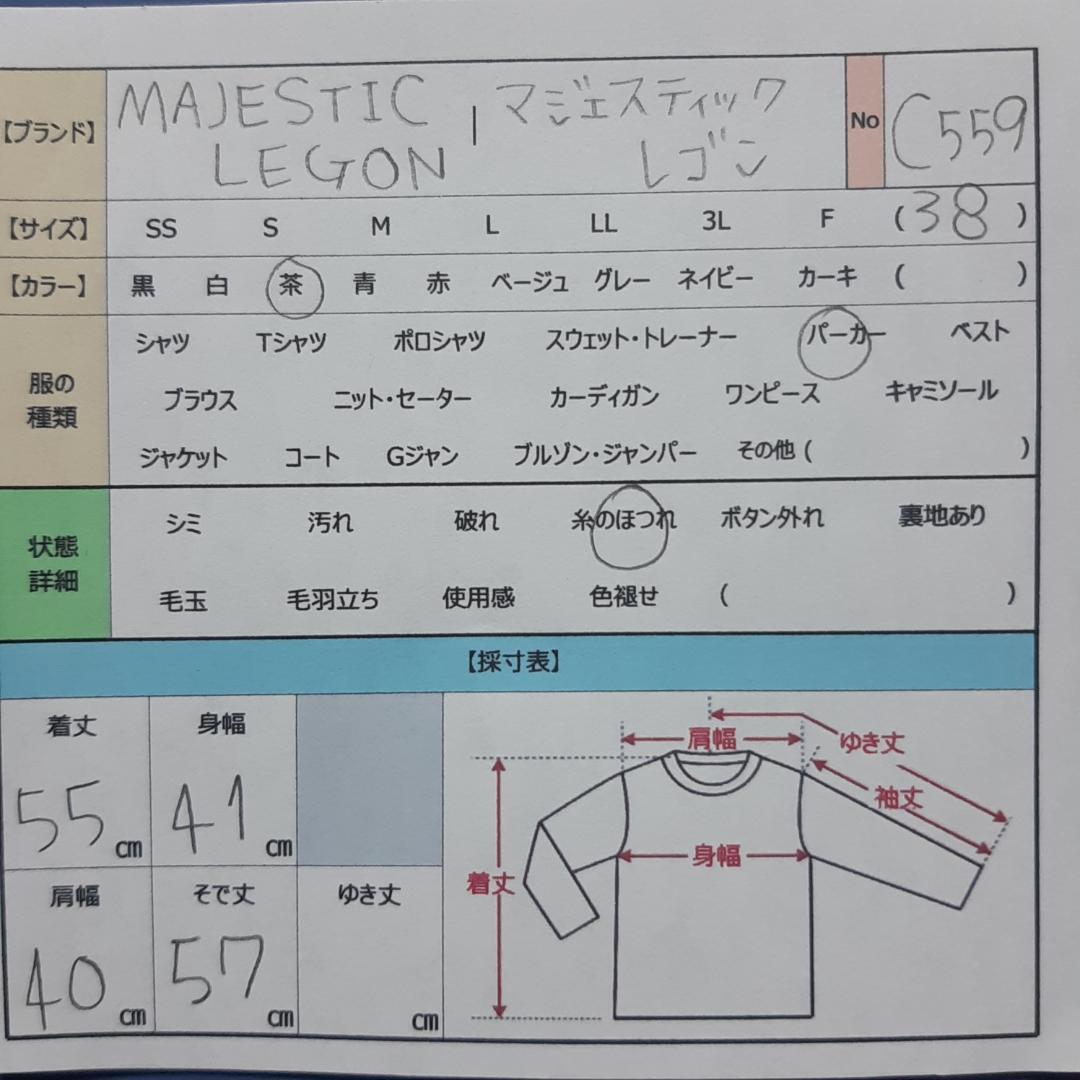 【ブランド】 MAJESTIC LEGON | マジェスティック レゴン No C559
【サイズ】 SS S M L LL 3L F (38)
【カラー】 黒 白 茶 青 赤 ベージュ グレー ネイビー カーキ ( )
服の種類
シャツ Tシャツ ポロシャツ スウェット・トレーナー パーカー ベスト
ブラウス ニット・セーター カーディガン ワンピース キャミソール
ジャケット コート Gジャン ブルゾン・ジャンパー その他 ( )
状態詳細
シミ 汚れ 破れ 糸のほつれ ボタン外れ 裏地あり
毛玉 毛羽立ち 使用感 色褪せ ( )
【採寸表】
着丈 身幅
55cm 41cm
肩幅 そで丈 ゆき丈
40cm 57cm cm
肩幅 ゆき丈
袖丈
身幅
着丈